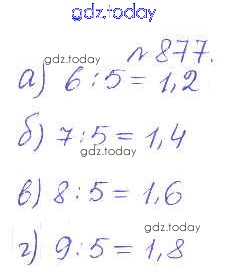 gdz.today
№877.
gdz.today
а) 6 : 5 = 1,2
б) 7 : 5 = 1,4
gdz.today
в) 8 : 5 = 1,6
gdz.today
г) 9 : 5 = 1,8
gdz.today